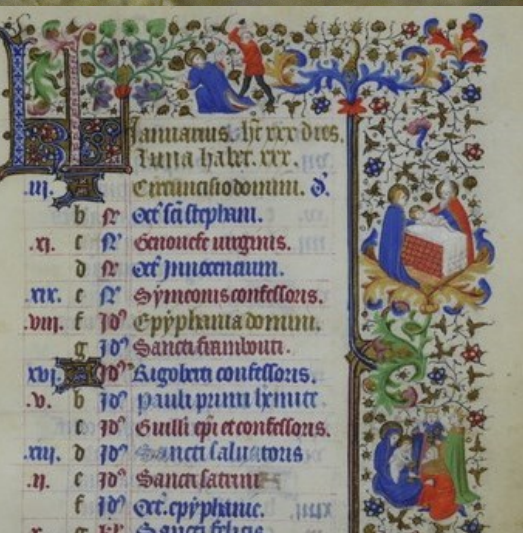 KL Ianuarius. hr̄ xxx dies.
Luna habet. xxx.
.iii. A Circuncisio domini. D.
b N̄ Oct̄ sc̄i stephani.
.xi. c N̄ Genouefe uirginis.
d N̄ Oct̄ Innocencium.
.xix. e N̄ Symeonis confessoris.
.viii. f Id9 Epyphania domini.
g Id9 Sancti
.xvi. A Id9 Rigoberti confessoris.
.v. b Id9 pauli primi
c Id9 Guill'i ep̄i et confessoris.
.xiii. d Id9 Sancti saluatoris
.ii. e Id9 Sancti
f Id9 Oct̄. epyphanie.
g kl' Sancti felicis